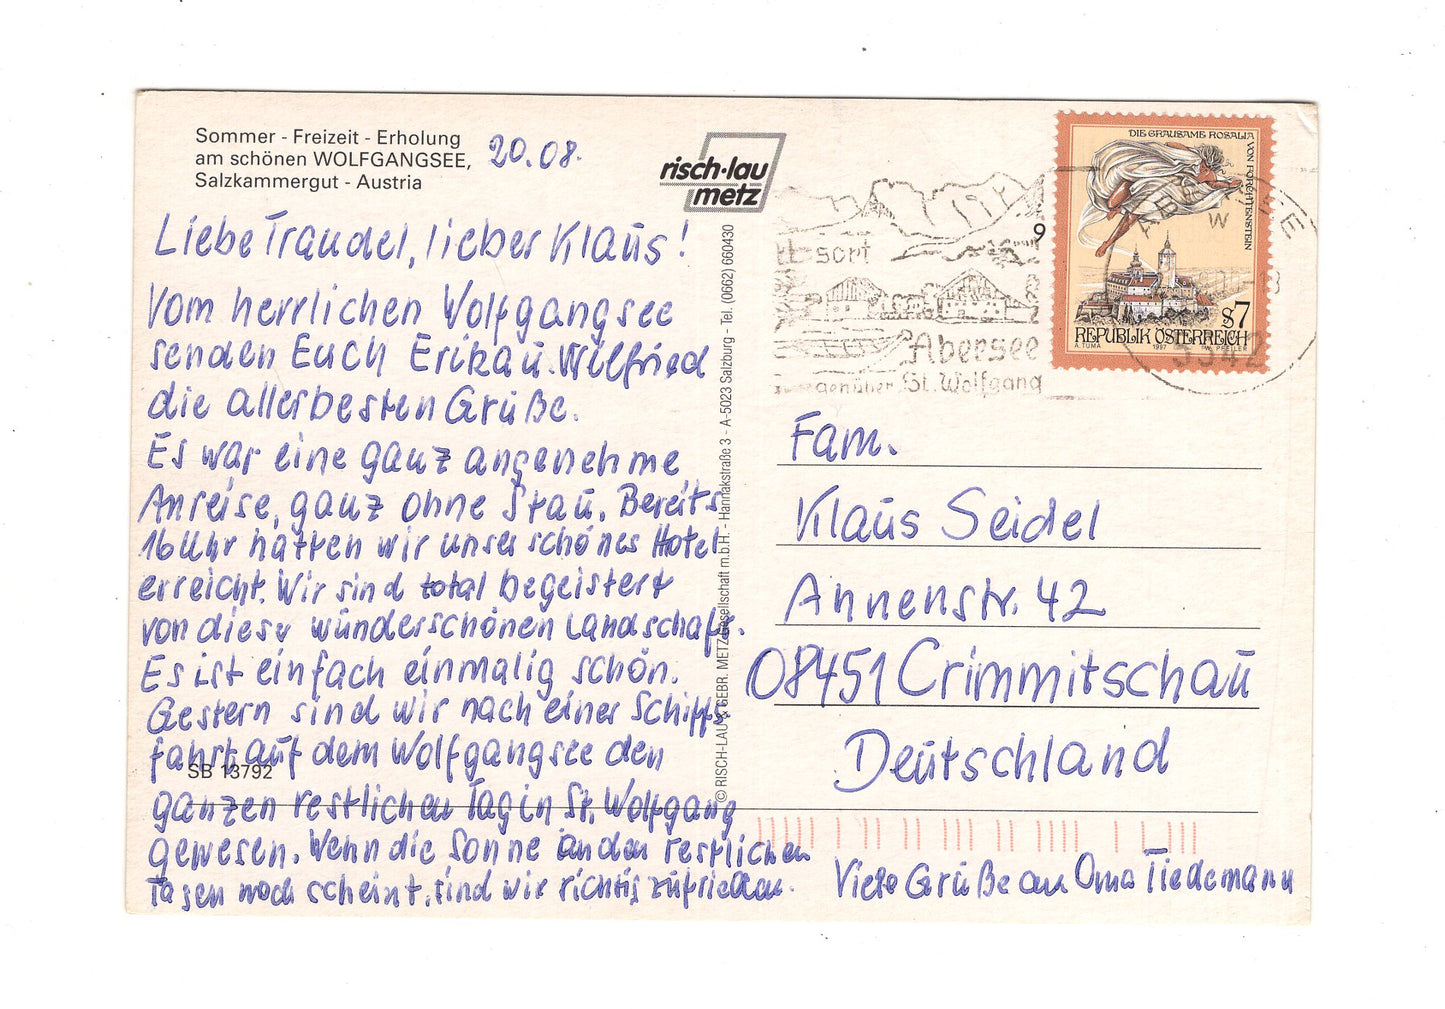 Sommer - Freizeit - Erholung
am schönen WOLFGANGSEE,
Salzkammergut - Austria
20.08.
Liebe Traudel, lieber Klaus!
Vom herrlichen Wolfgangsee
senden Euch Erika u. Wilfried
die allerbesten Grüße.
Es war eine ganz angenehme
Anreise, ganz ohne Stau. Bereits
16 Uhr hatten wir unser schönes Hotel
erreicht. Wir sind total begeistert
von dieser wunderschönen Landschaft.
Es ist einfach einmalig schön.
Gestern sind wir nach einer Schiffs
fahrt auf dem Wolfgangsee den
ganzen restlichen Tag in St. Wolfgang
gewesen. Wenn die Sonne an den restlichen
Tagen noch scheint, sind wir richtig zufrieden.
SB 13792
risch-lau
metz
© RISCH-LAU & GEBR. METZ Gesellschaft m.b.H. - Hannakstraße 3 - A-5023 Salzburg - Tel. (0662) 660430
9
sort
Abersee
gegenüber St. Wolfgang
DIE GRAUSAME ROSALIA
VON FORCHTENSTEIN
S7
REPUBLIK ÖSTERREICH
A. TUMA 1997 W. PFEILER
W
5342
Fam.
Klaus Seidel
Annenstr. 42
08451 Crimmitschau
Deutschland
Viele Grüße an Oma Tiedemann